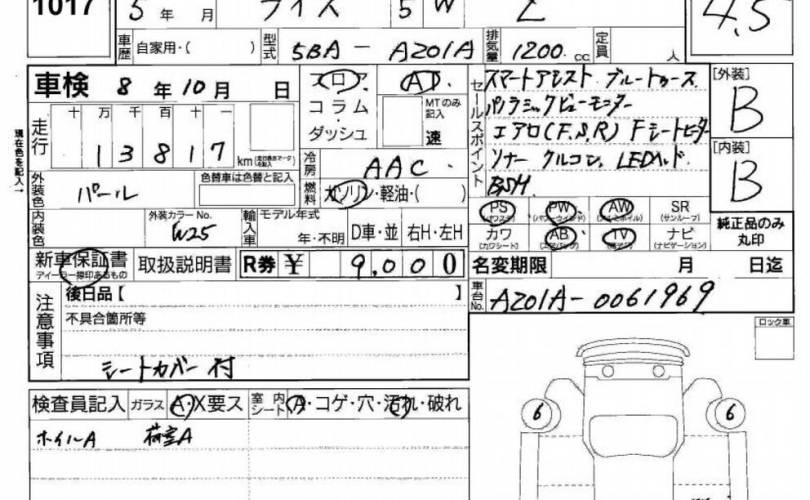 1017
5 年 月
ライズ 5W Z
4.5
車歴 自家用・( ) 型式 5BA-A201A 排気量 1200 cc 定員 人
車検 8 年 10 月 日
フロア AT
コラム・ダッシュ MTのみ記入 速
セールスポイント
スマートアシスト ブルートゥース
パノラミックビューモニター
エアロ(F.S.R) Fシートヒーター
ソナー クルコン LEDヘッド
BSM
[外装] B
[内装] B
現在色を記入→
走行 十 万 千 百 十 一
13817 km
冷房 AAC
外装色 パール 色替車は色替と記入
燃料 ガソリン・軽油・( )
内装色 外装カラーNo. W25 輸入車 モデル年式 年・不明 D車・並 右H・左H
PS (パワステ) PW (パワーウィンド) AW (アルミホイル) SR (サンルーフ)
カワ (カワシート) AB (エアバック) TV ナビ (ナビゲーション)
純正品のみ丸印
新車保証書 取扱説明書 R券 ¥ 9,000
名変期限 月 日迄
車台No. A201A-0061969
注意事項
後日品【 】
不具合箇所等
シートカバー付
ロック車
検査員記入 ガラス A・X要ス 室内シート A・コゲ・穴・汚れ・破れ
ホイルA 荷室A
6 6